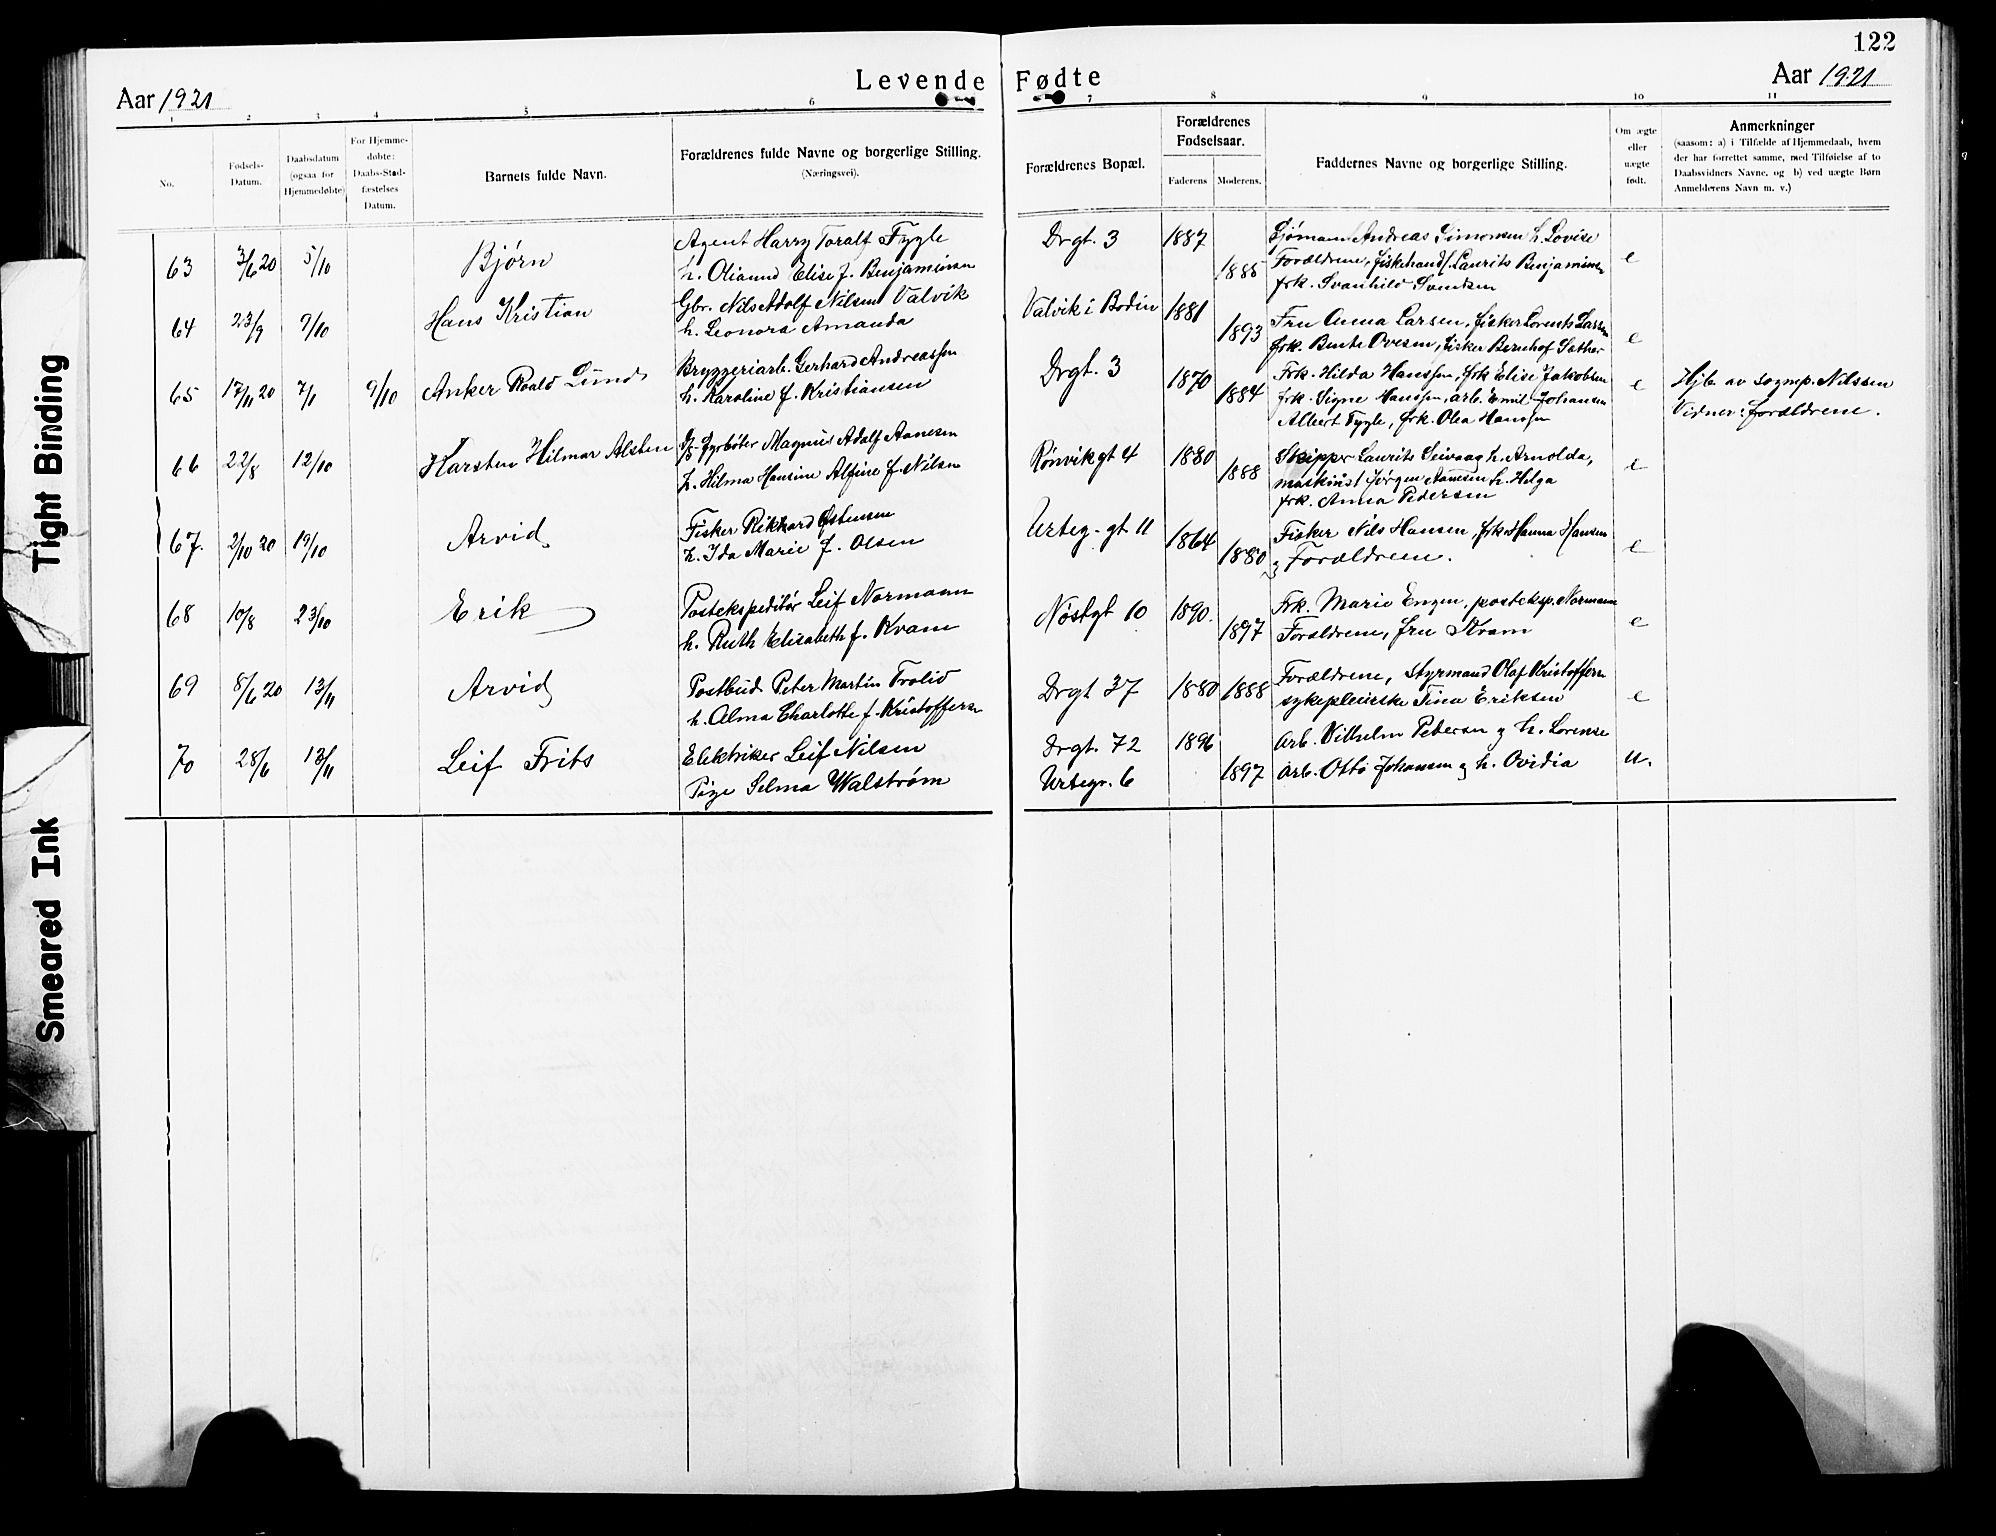 122
Levende Fødte
Aar 1921
Aar 1921
1 2 3 4 5 6 7 8 9 10 11
No.
Fødsels-Datum.
Daabsdatum (ogsaa for Hjemmedøbte)
For Hjemme-døbte: Daabs-Stad-fæstelses Datum.
Barnets fulde Navn.
Forældrenes fulde Navne og borgerlige Stilling.
(Næringsvei).
Forældrenes Bopæl.
Forældrenes Fødselsaar.
Faderens
Moderens.
Faddernes Navne og borgerlige Stilling.
Om ægte eller uægte født.
Anmerkninger
(saasom: a) i Tilfælde af Hjemmedaab, hvem
der har forrettet samme, med Tilføielse af to
Daabsvidners Navne, og b) ved uægte Børn
Anmelderens Navn m. v.)
63 3/6 20 5/10 Bjørn
Agent Harry Toralf Fygle
h. Oliannd Elise f. Benjaminsen
Drgt. 3 1887 1885
Sjømann Andreas Simonsen h. Lovise
Forældrene, fiskehandl. Laurits Benjaminsen
frk. Svanhild Svendsen
e
64 23/9 9/10 Hans Kristian
Gbr. Nils Adolf Nilsen Valvik
h. Leonora Amanda
Valvik i Bodin 1881 1893
Fru Anna Larsen, fisker Lorents Larsen
frk. Bente Ovesen, fisker Bernhof Sæther
e
65 17/11 20 7/1 9/10 Anker Roald Lund
Bryggeriarb. Gerhard Andreassen
h. Karoline f. Kristiansen
Drgt. 3 1870 1884
Frk. Hilda Hanssen, frk Elise Jakobsen
frk. Signe Hanssen, arb. Emil Johansen
Albert Fygle, frk. Olea Hanssen
e
Hjb. av sogmp. Nilssen
Vidner: forældrene.
66 22/8 12/10 Karsten Hilmar Alsten
fyrbøter Magnus Adolf Aanesen
h. Hilma Hansine Alfine f. Nilsen
Rønvikgt 4 1880 1888
Skipper Laurits Seivaag h. Arnolda,
maskinist Jørgen Aanesen h. Helga
frk. Anna Pedersen
e
67. 2/10 20 19/10 Arvid
Fisker Rikhard Østensen
h. Ida Marie f. Olsen
Urteg. gt 11 1864 1880
Fisker Nils Hansen, frk Hanna Hansen
og Forældrene.
e
68 10/8 23/10 Erik
Postekspeditør Leif Normann
h. Ruth Elisabeth f. Kvam
Nøstgt 10 1890. 1897
Frk. Marie Engen, posteksp. Normann
Forældrene, fru Kvam
e
69 8/6 20 13/11 Arvid
Postbud Peter Martin Trolid
h. Alma Charlotte f. Kristoffersen
Drgt 37 1880 1888
Forældrene, styrmand Olaf Kristoffersen
sykepleierske Tina Eriksen
e
70 28/6 13/11 Leif Frits
Elektriker Leif Nilsen
Pige Selma Walstrøm
Drgt. 72 1896
Urtegr. 6 1897
Arb. Vilhelm Petersen og h. Lorense
Arb. Otto Johansen og h. Ovidia
u.
Tight Binding
Smeared Ink